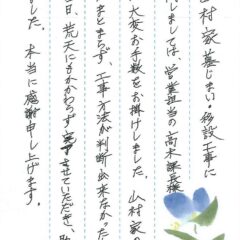 山村家墓じまい・移設工事に
しましては、営業担当の高木課長様
大変お手数をお掛けしました。山村家の
まとまらず、工事方法が判断出来なかった
日、荒天にもかかわらず実施させていただき、
ました。本当に感謝申し上げます。